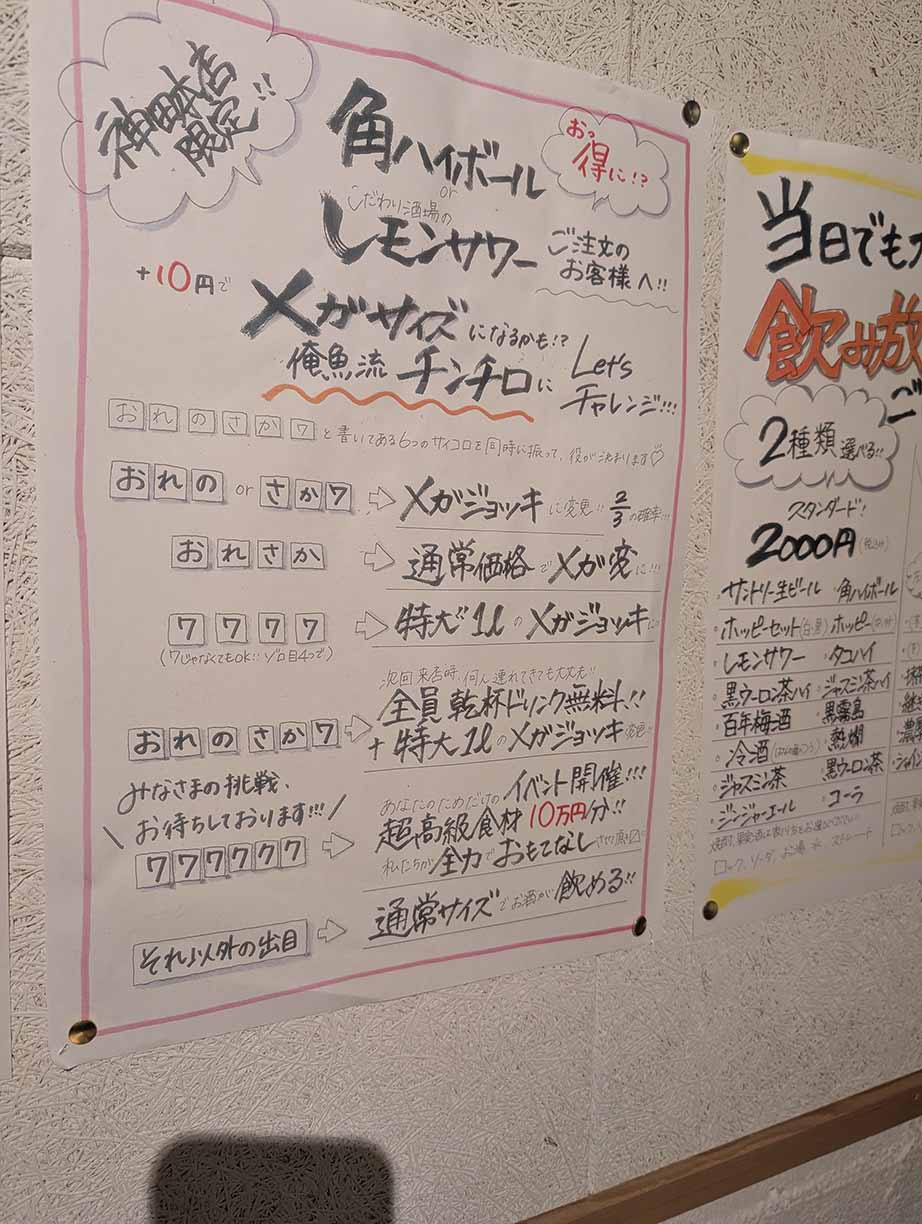 神田本店
限定!!
角ハイボール
or
こだわり酒場の
レモンサワー
おっ
得に!?
ご注文の
お客様へ!!
+10円で
メガサイズになるかも!?
俺魚流 チンチロに
Let's
チャレンジ!!!
おれのさかワと書いてある6つのサイコロを同時に振って、役が決まります♡
おれの or さかワ ⇨ メガジョッキに変更!! 2/3の確率!!!
おれさか ⇨ 通常価格でメガ変に!!!
ワワワワ ⇨ 特大1ℓのメガジョッキに
(ワじゃなくてもOK!! ゾロ目4つで)
次回来店時、何人連れてきても大丈夫!!
おれのさかワ ⇨ 全員乾杯ドリンク無料!!
+特大1ℓのメガジョッキ変更!!
みなさまの挑戦、
お待ちしております!!!
あなたのためだけのイベント開催!!!
ワワワワワワ ⇨ 超高級食材 10万円分!!
私たちが全力でおもてなし
それ以外の出目 ⇨ 通常サイズでお酒が飲める!!
当日でも
飲み放
ご
2種類選べる!!
スタンダード!
2000円(税込)
サントリー生ビール ・角ハイボール
・ホッピーセット(白・黒) ホッピー
・レモンサワー ・タコハイ
・黒ウーロン茶ハイ ・ジャスミン茶ハイ
・百年梅酒 ・黒霧島
・冷酒 ・熱燗
・ジャスミン茶 ・黒ウーロン茶
・ジンジャーエール ・コーラ
ロック、ソーダ、お湯、水、ストレート